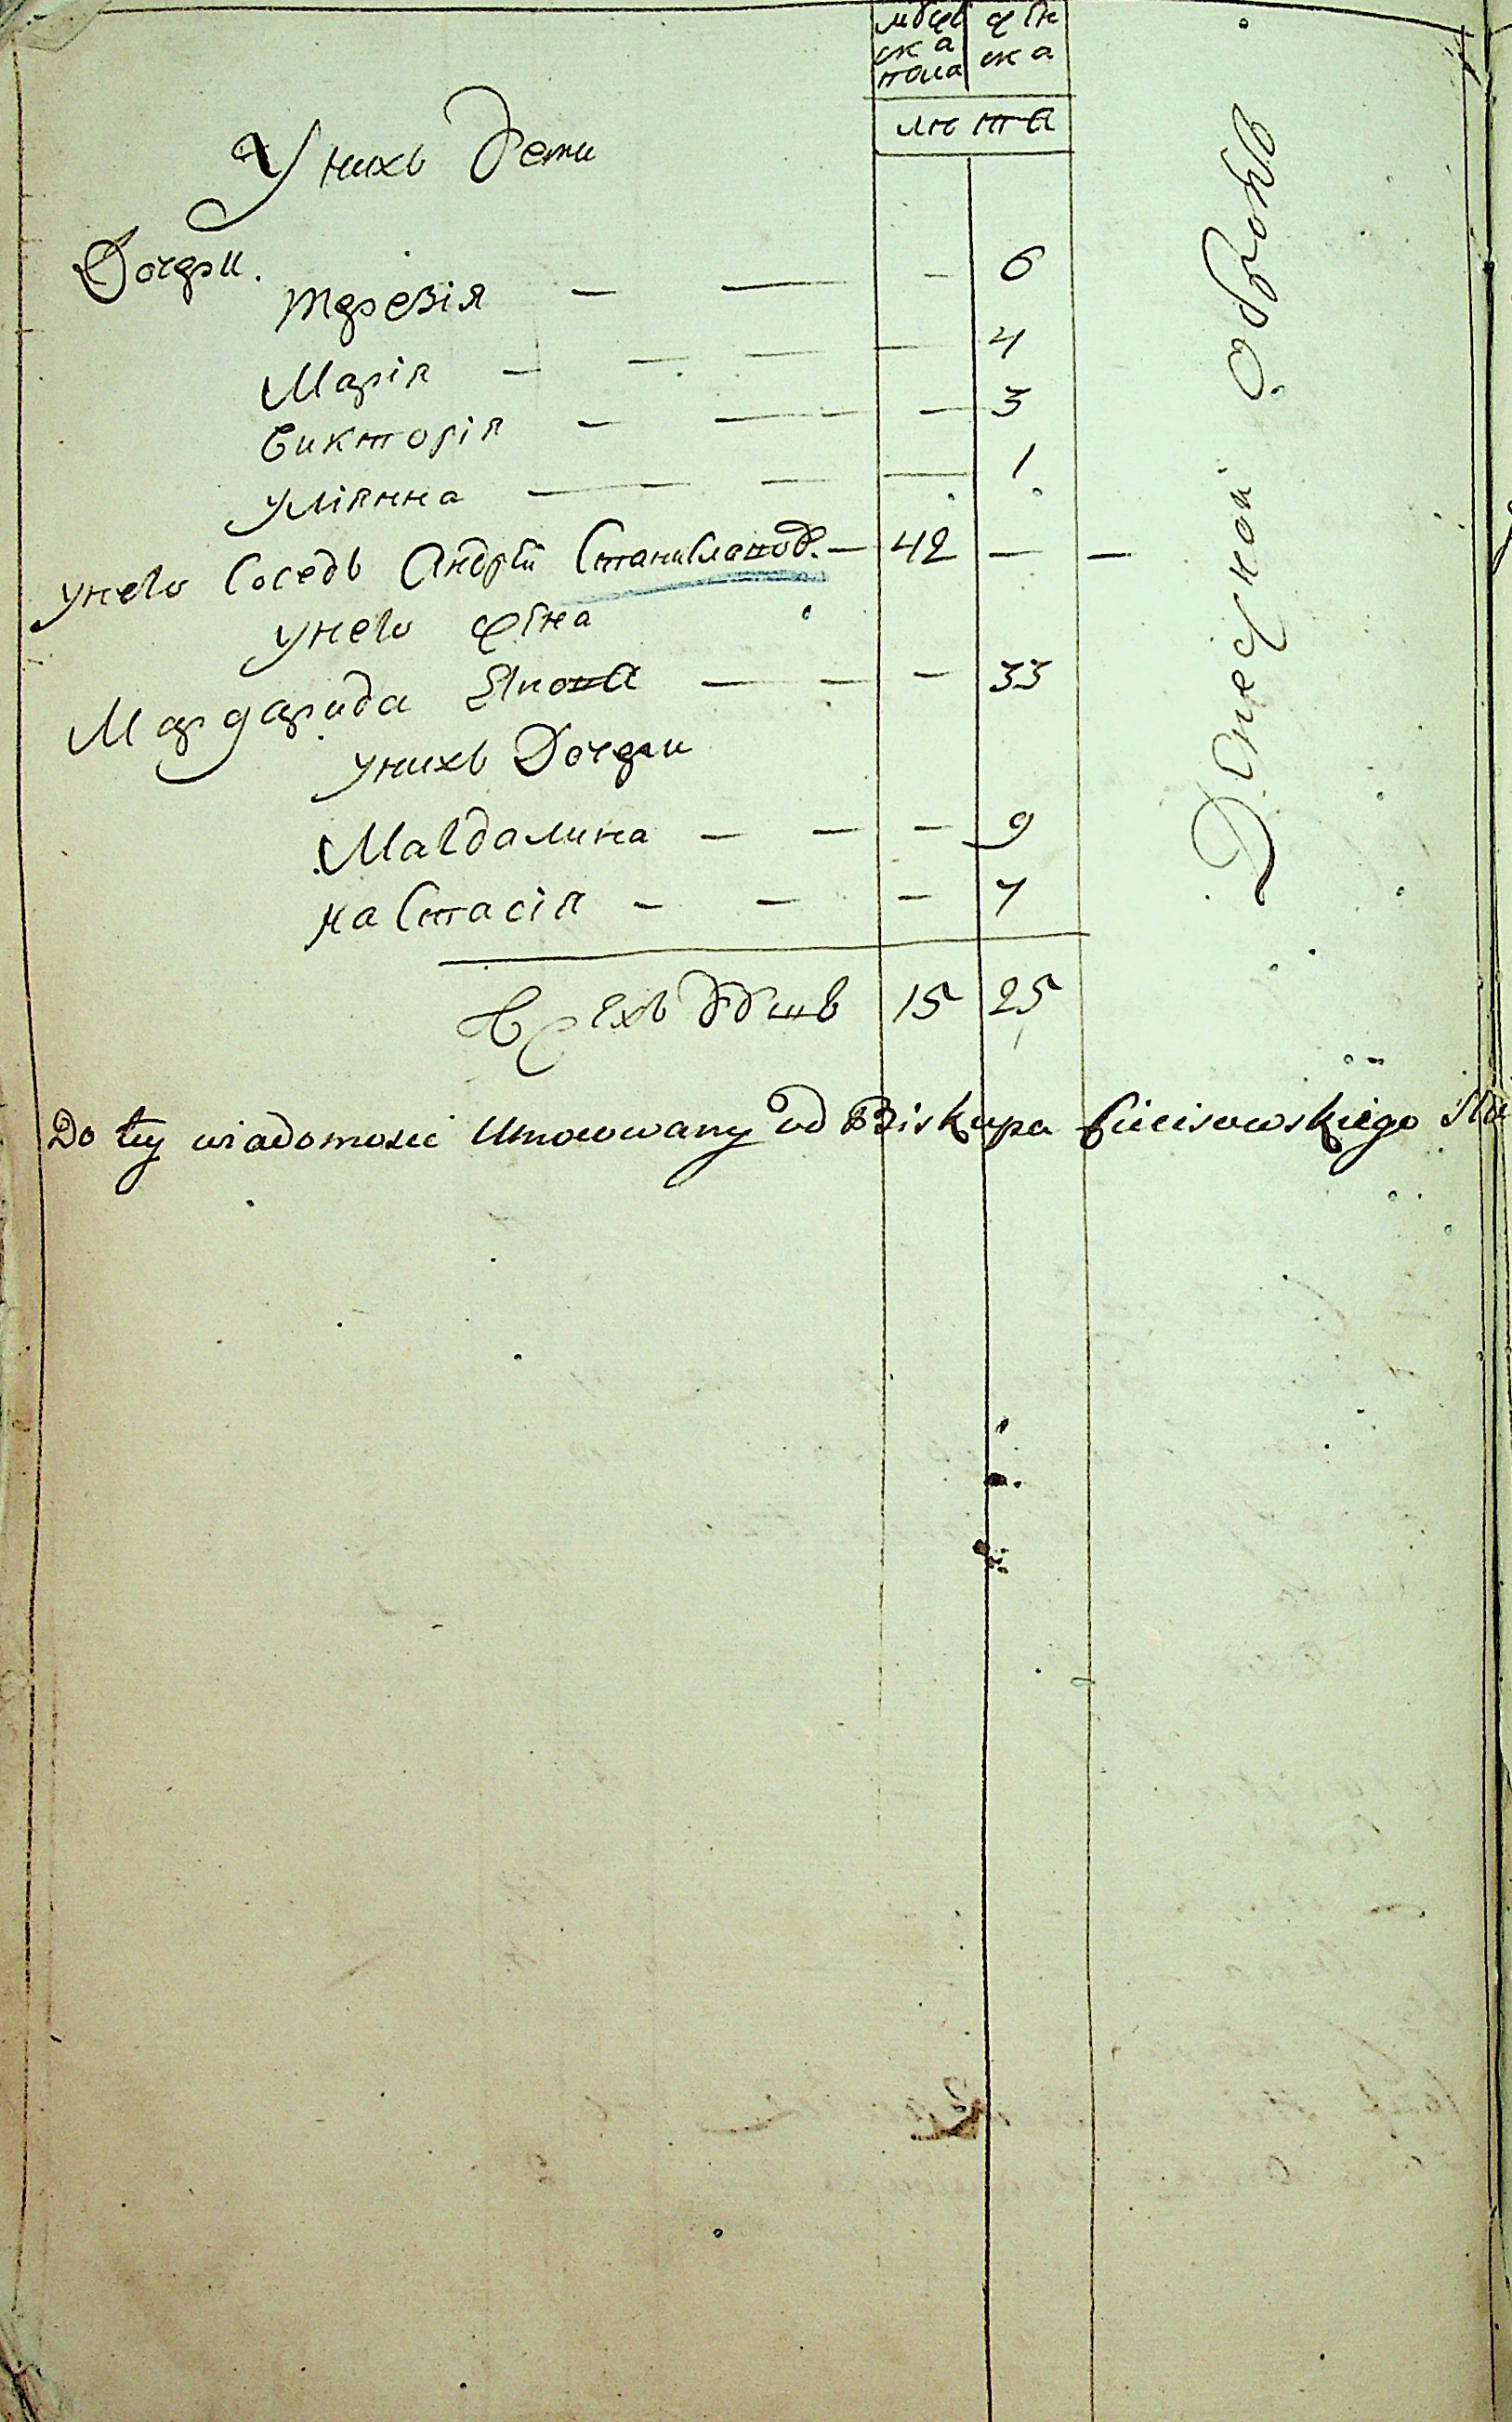 мужеска пола женска
лета
У нихъ дети
Дочери.
Терезія — — — 6
Марія — — — — 4
Викторія — — — 3
Уліянна — — — 1
унего Соседъ Андрей Станиславов. — 42 — —
унего жена
Маргарида Яков — — — 33
унихъ Дочери
Магдалина — — — 9
настасія — — — 7
Всехъ душъ 15 25
Do tey wiadomosci Umocowany od Biskupa Cieciszowskiego